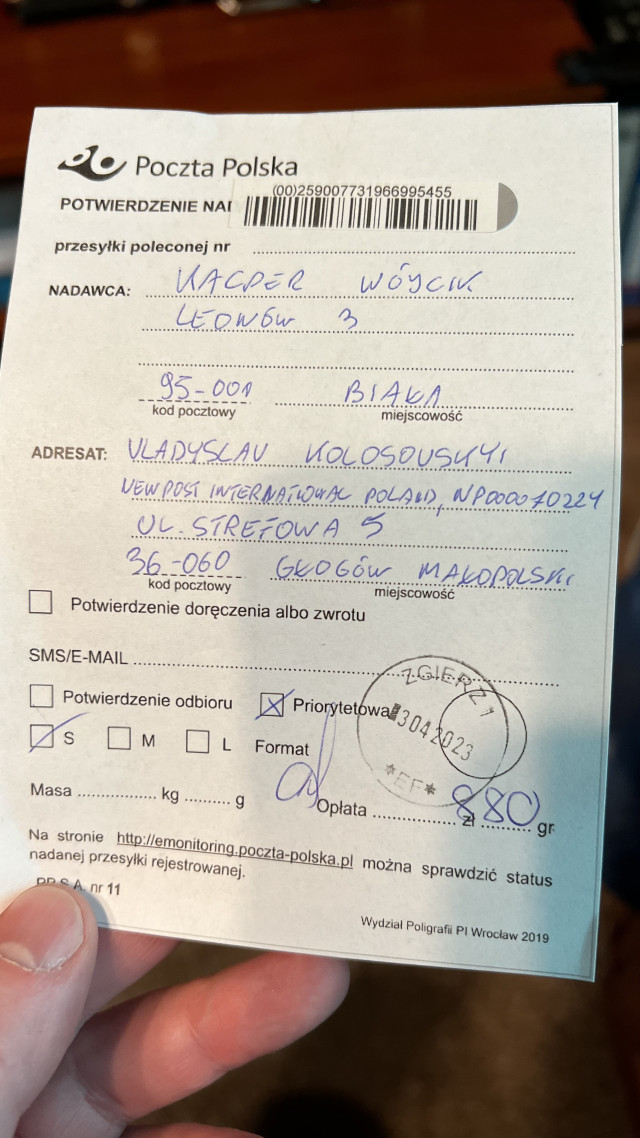 Poczta Polska
(00)259007731966995455
POTWIERDZENIE
przesyłki poleconej nr
NADAWCA: KACPER WÓJCIK
LEONÓW 3
95-001 BIAŁA
kod pocztowy miejscowość
ADRESAT: VLADYSLAV KOLOSOVSKYI
NEW POST INTERNATIONAL POLAND, NP000070224
UL. STREFOWA 5
36-060 GŁOGÓW MAŁOPOLSKI
kod pocztowy miejscowość
Potwierdzenie doręczenia albo zwrotu
SMS/E-MAIL
ZGIERZ 1
Potwierdzenie odbioru Priorytetowa
042023
S M L Format
*EF*
Masa kg g Opłata 880 zł gr
Na stronie http://emonitoring.poczta-polska.pl można sprawdzić status
nadanej przesyłki rejestrowanej.
nr 11
Wydział Poligrafii PI Wrocław 2019